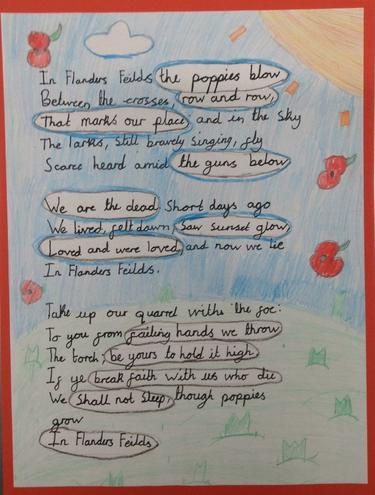 In Flanders Feilds the poppies blow
Between the crosses, row and row,
That marks our place and in the sky
The larks, still bravely singing, fly
Scarce heard amid the guns below
We are the dead Short days ago
We lived, felt down, Saw sunset glow,
Loved and were loved, and now we lie
In Flanders Feilds.
Take up our quarrel withs the foe:
To you from failing hands we throw
The torch; be yours to hold it high
If ye break faith with us who die
We Shall not Sleep, though poppies
grow
In Flanders Feilds